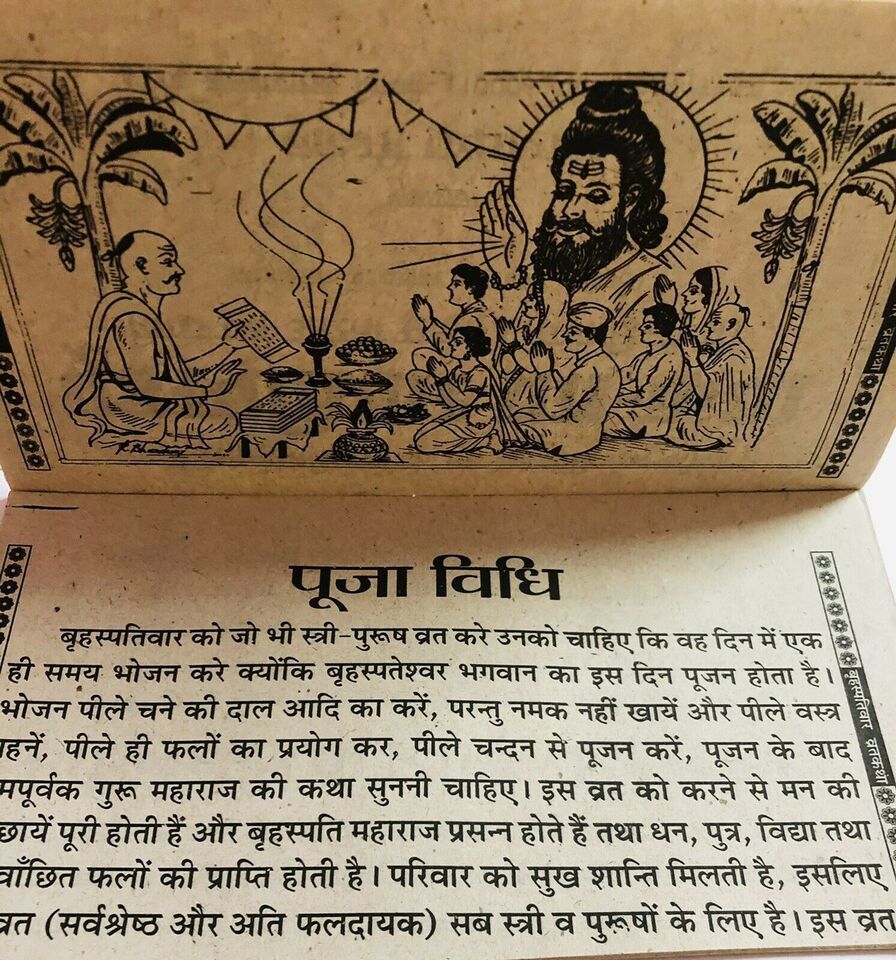 व्रतकथा
पूजा विधि
बृहस्पतिवार को जो भी स्त्री-पुरूष व्रत करे उनको चाहिए कि वह दिन में एक
ही समय भोजन करे क्योंकि बृहस्पतेश्वर भगवान का इस दिन पूजन होता है।
भोजन पीले चने की दाल आदि का करें, परन्तु नमक नहीं खायें और पीले वस्त्र
हनें, पीले ही फलों का प्रयोग कर, पीले चन्दन से पूजन करें, पूजन के बाद
मपूर्वक गुरू महाराज की कथा सुननी चाहिए। इस व्रत को करने से मन की
छायें पूरी होती हैं और बृहस्पति महाराज प्रसन्न होते हैं तथा धन, पुत्र, विद्या तथा
वाँछित फलों की प्राप्ति होती है। परिवार को सुख शान्ति मिलती है, इसलिए
व्रत (सर्वश्रेष्ठ और अति फलदायक) सब स्त्री व पुरूषों के लिए है। इस व्रत
बृहस्पतिवार व्रतकथा